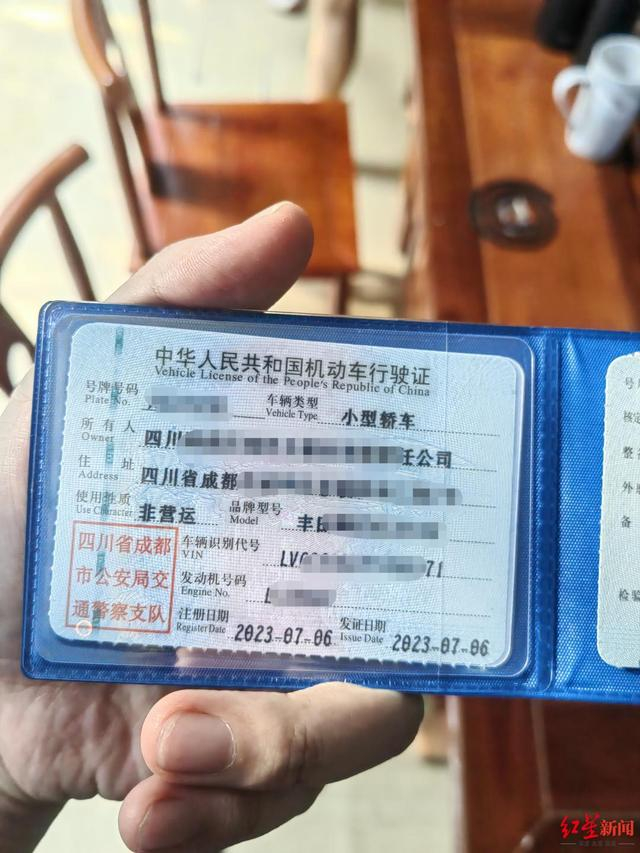 中华人民共和国机动车行驶证
Vehicle License of the People's Republic of China
号牌号码
Plate No.
车辆类型 小型轿车
Vehicle Type
所有人 四川 任公司
Owner
住址 四川省成都
Address
使用性质 非营运
Use Character
品牌型号 丰田
Model
四川省成都
市公安局交
通警察支队
车辆识别代号 LV 71
VIN
发动机号码 L
Engine No.
注册日期 2023-07-06
Register Date
发证日期 2023-07-06
Issue Date
号
核定
整备
外廓
备
检验
红星新闻